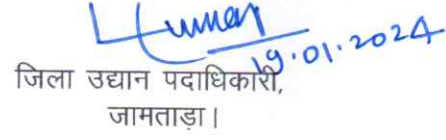 19.01.2024
जिला उद्यान पदाधिकारी,
जामताड़ा।